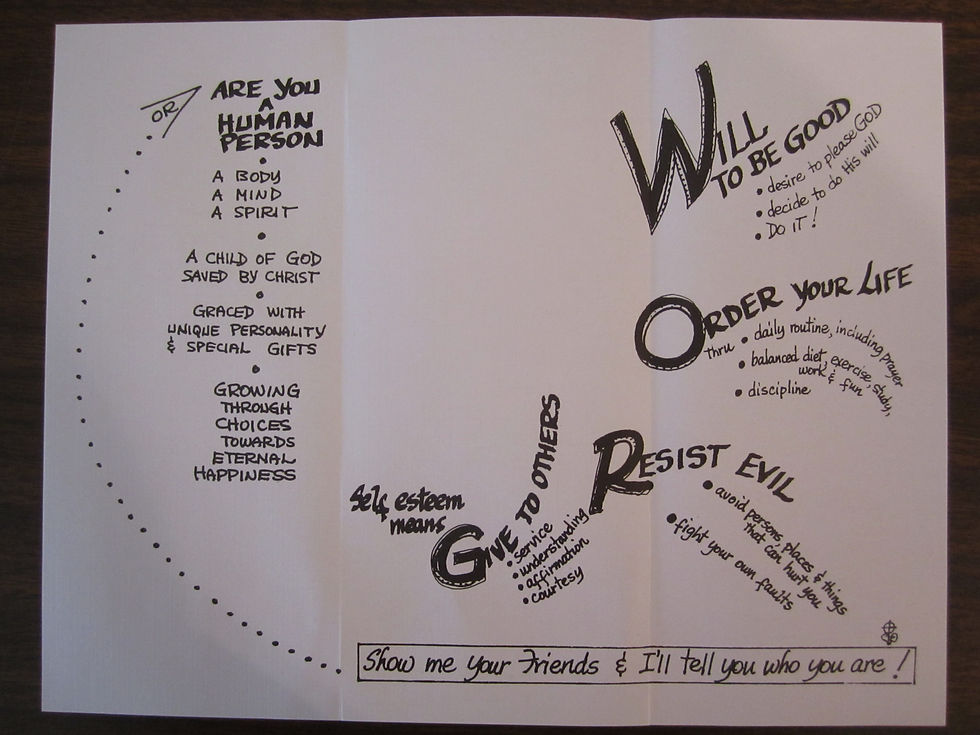 OR
ARE YOU
A
HUMAN
PERSON
A BODY
A MIND
A SPIRIT
A CHILD OF GOD
SAVED BY CHRIST
GRACED WITH
UNIQUE PERSONALITY
& SPECIAL GIFTS
GROWING
THROUGH
CHOICES
TOWARDS
ETERNAL
HAPPINESS
Self esteem
means
GIVE TO OTHERS
• service
• understanding
• affirmation
• courtesy
WILL
TO BE GOOD
• desire to please GOD
• decide to do His will
• DO IT!
ORDER YOUR LIFE
thru • daily routine, including prayer
• balanced diet, exercise, study,
work & fun
• discipline
RESIST EVIL
• avoid persons, places & things
that can hurt you
• fight your own faults
Show me your Friends & I'll tell you who you are!